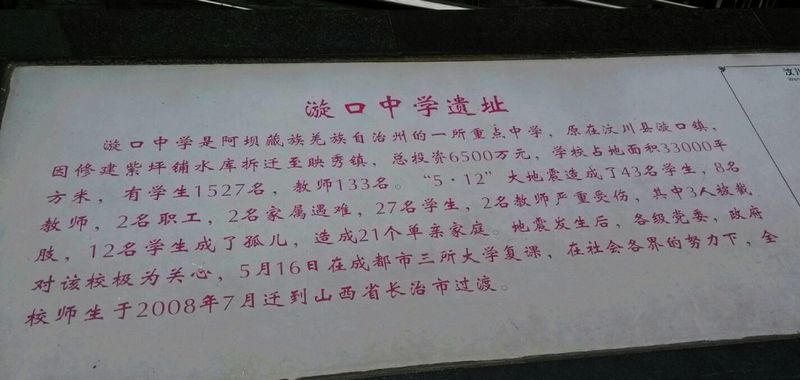 漩口中学遗址
漩口中学是阿坝藏族羌族自治州的一所重点中学，原在汶川县漩口镇，
因修建紫坪铺水库拆迁至映秀镇，总投资6500万元，学校占地面积33000平
方米，有学生1527名，教师133名。“5·12”大地震造成了43名学生，8名
教师，2名职工，2名家属遇难，27名学生，2名教师严重受伤，其中3人被截
肢，12名学生成了孤儿，造成21个单亲家庭。地震发生后，各级党委，政府
对该校极为关心，5月16日在成都市三所大学复课，在社会各界的努力下，全
校师生于2008年7月迁到山西省长治市过渡。
汶川